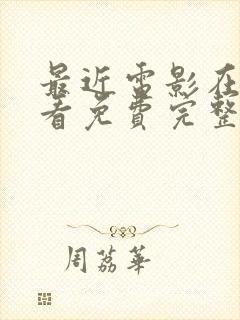 最近雷影在
看免费完整
周荔華